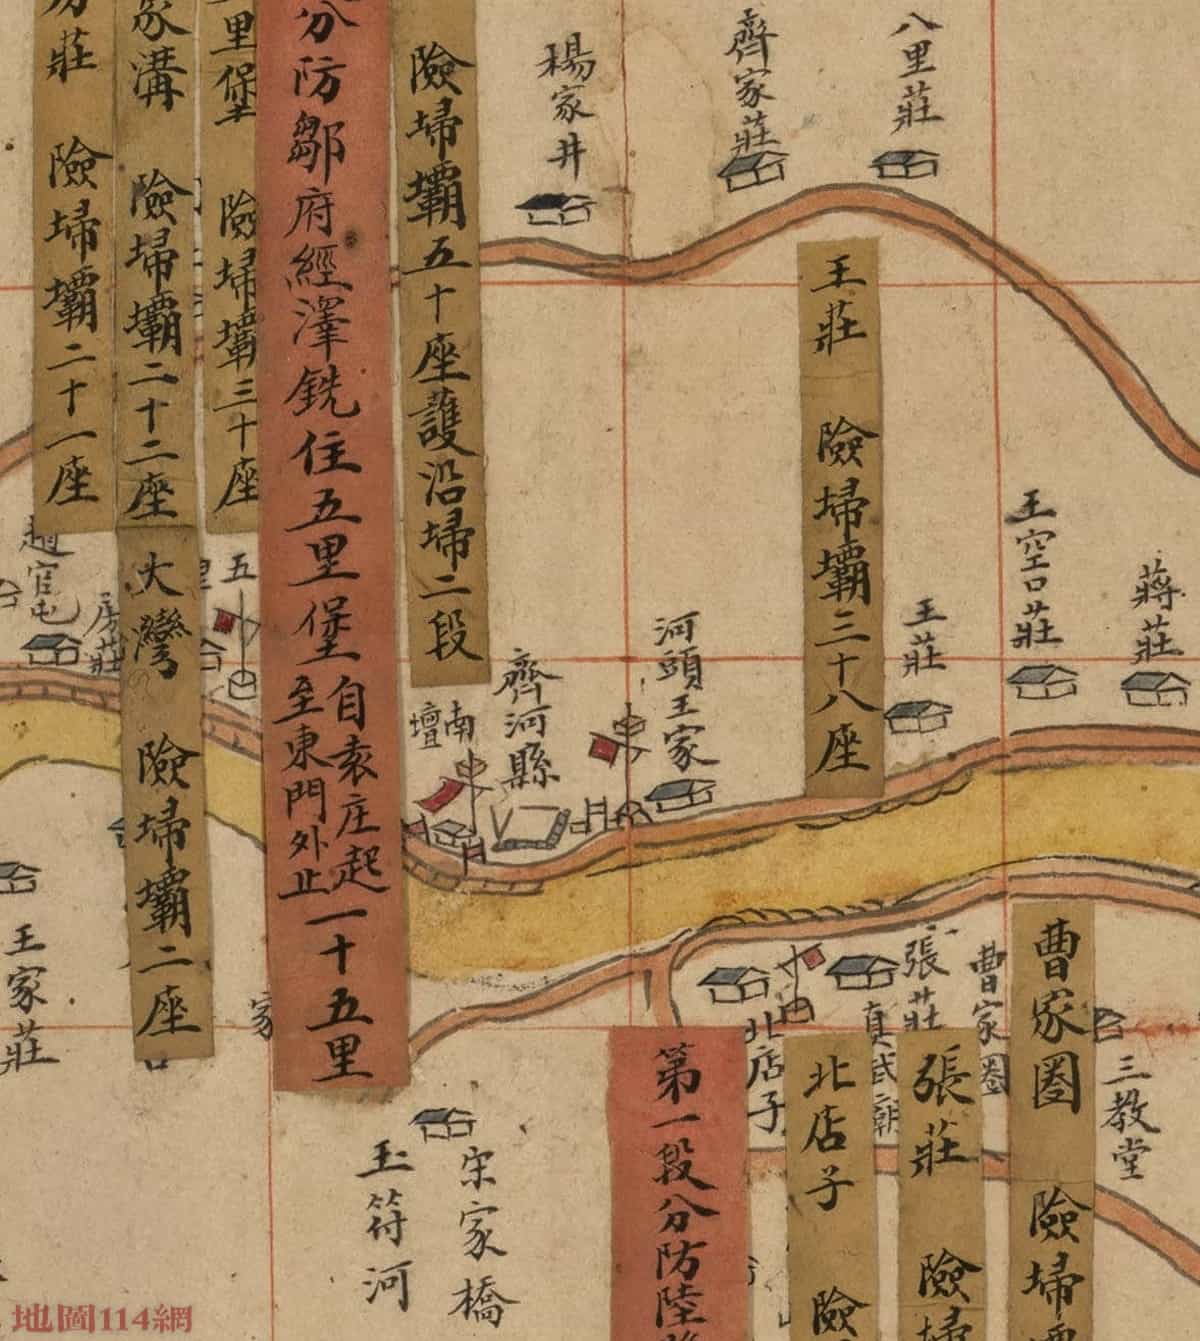 八里莊
齊家莊
楊家井
險埽壩五十座護沿埽二段
分防鄒府經澤銑住五里堡自袁庄起至東門外止一十五里
里堡 險埽壩三十座
家溝 險埽壩二十二座
莊 險埽壩二十一座
王莊 險埽壩三十八座
蔣莊
王空口莊
王莊
河頭王家
齊河縣
南壇
五里
大灣 險埽壩二座
房莊
趙官屯
王家莊
家
曹家圈 險埽
三教堂
曹家圈
張莊
張莊 險埽
真武廟
北店子
北店子 險
第一段分防陸
宋家橋
玉符河
地圖114網